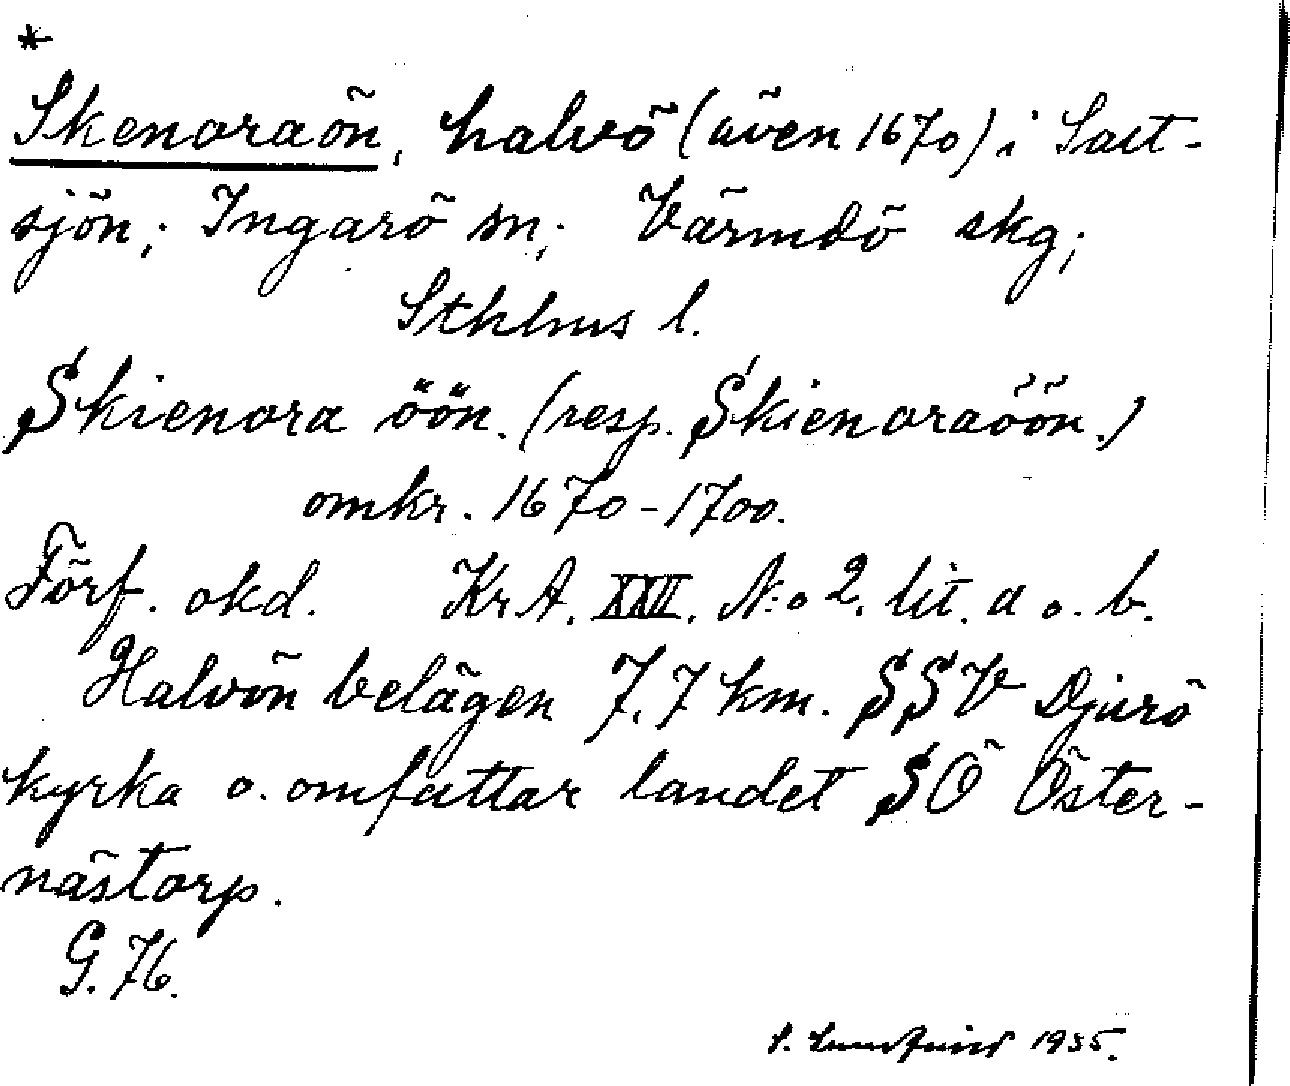 *
Skenoraön, halvö (även 1670) i Salt-
sjön; Ingarö sn; Värmdö skg;
Sthlms l.
Skienora öön. (resp. Skienoraöön.)
omkr. 1670-1700.
Förf. okd. KrA. XXII. N:o 2. lit. a o. b.
Halvön belägen 7,7 km. SSV Djurö
kyrka o. omfattar landet SÖ Öster-
nästorp.
G. 76.
S. 1935.